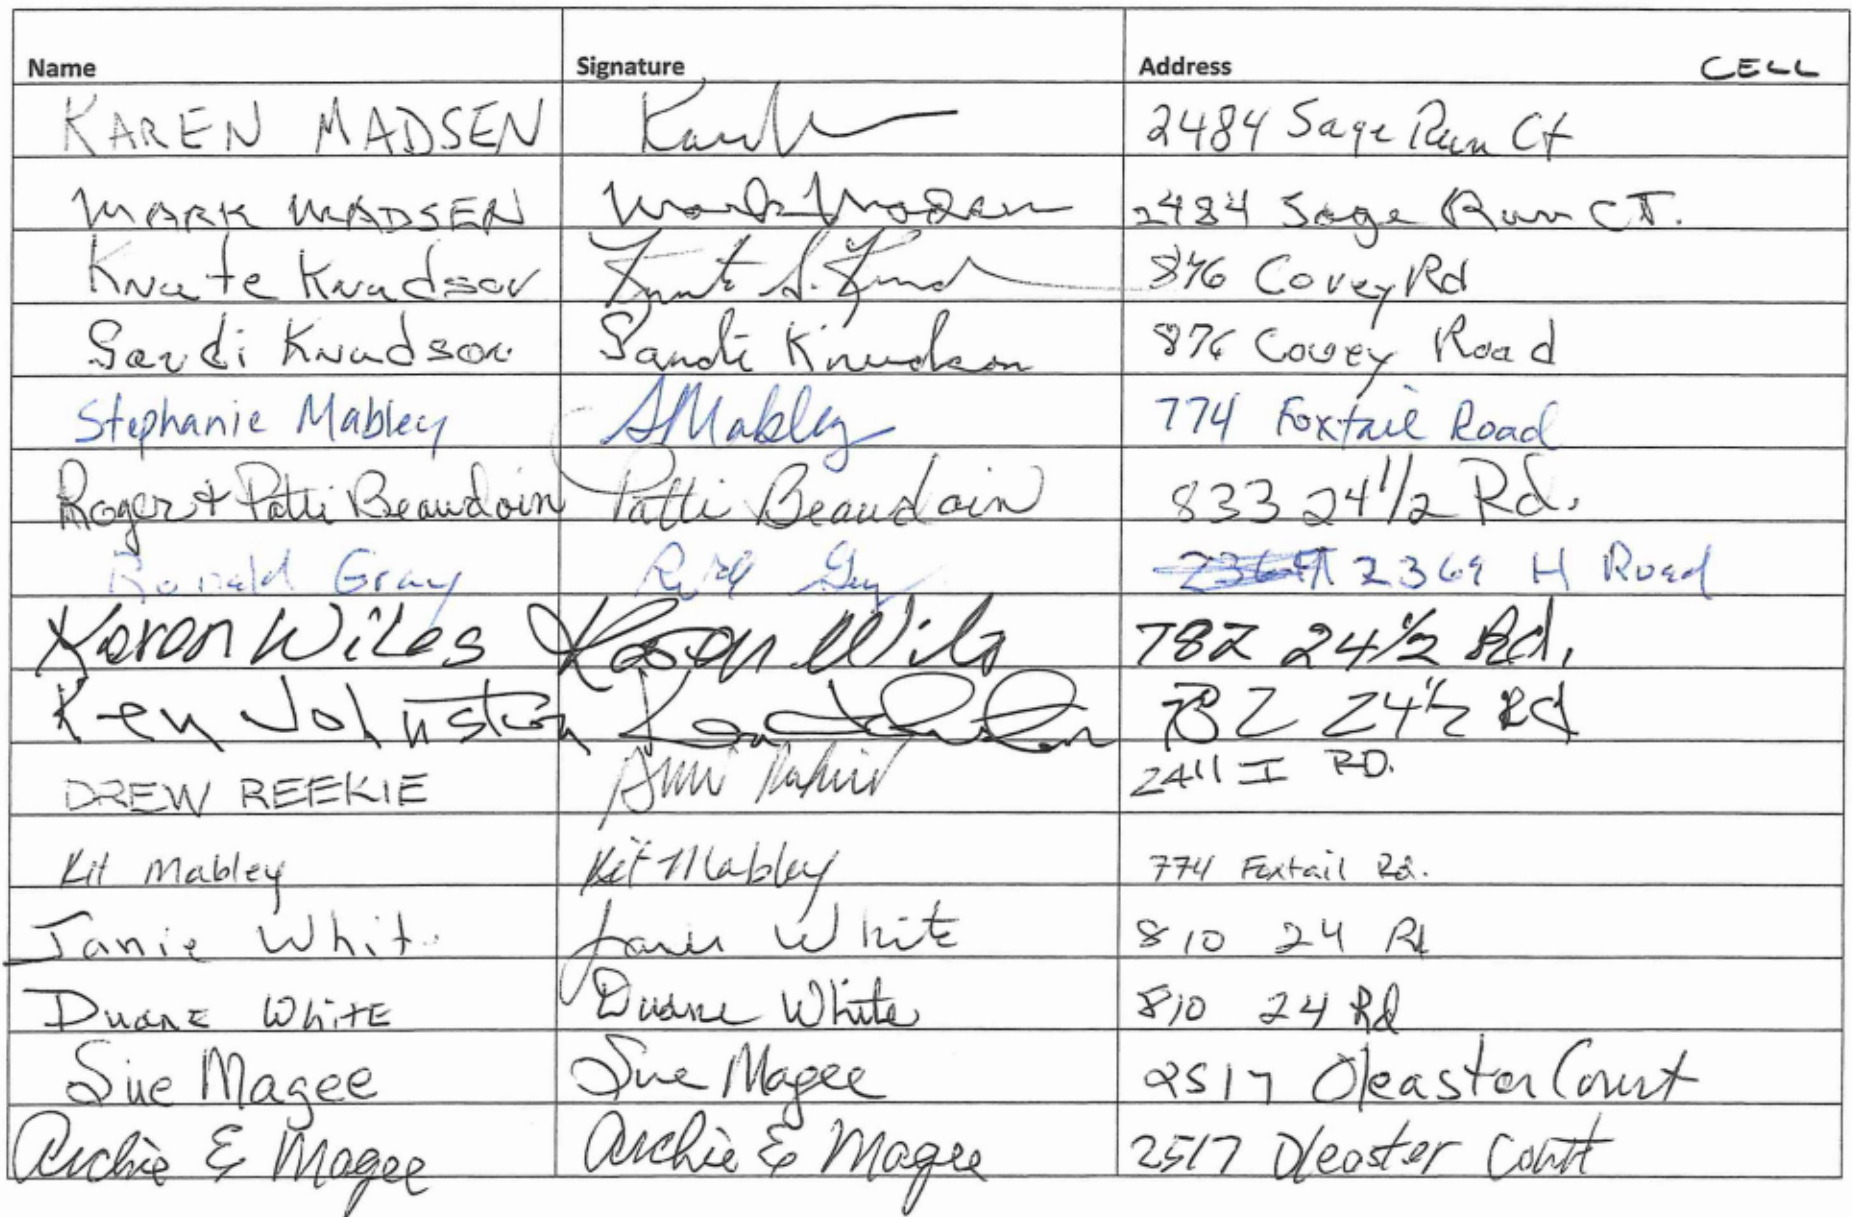 Name Signature Address CELL
KAREN MADSEN 2484 Sage Run Ct
MARK MADSEN Mark Madsen 2484 Sage Run CT.
Knute Knudson 876 Covey Rd
Sandi Knudson Sandi Knudson 876 Covey Road
Stephanie Mabley SMabley 774 Foxtail Road
Roger & Patti Beaudoin Patti Beaudoin 833 24 1/2 Rd.
Ronald Gray 2369 H Road
Karon Wiles Karon Wiles 782 24 1/2 Rd.
Ken Johnston 782 24 1/2 Rd
DREW REEKIE 2411 I RD.
Kit Mabley Kit Mabley 774 Foxtail Rd.
Janie Whit Janie White 810 24 Rd
Duane White Duane White 810 24 Rd
Sue Magee Sue Magee 2517 Oleaster Court
Archie E Magee Archie E Magee 2517 Oleaster Courtt